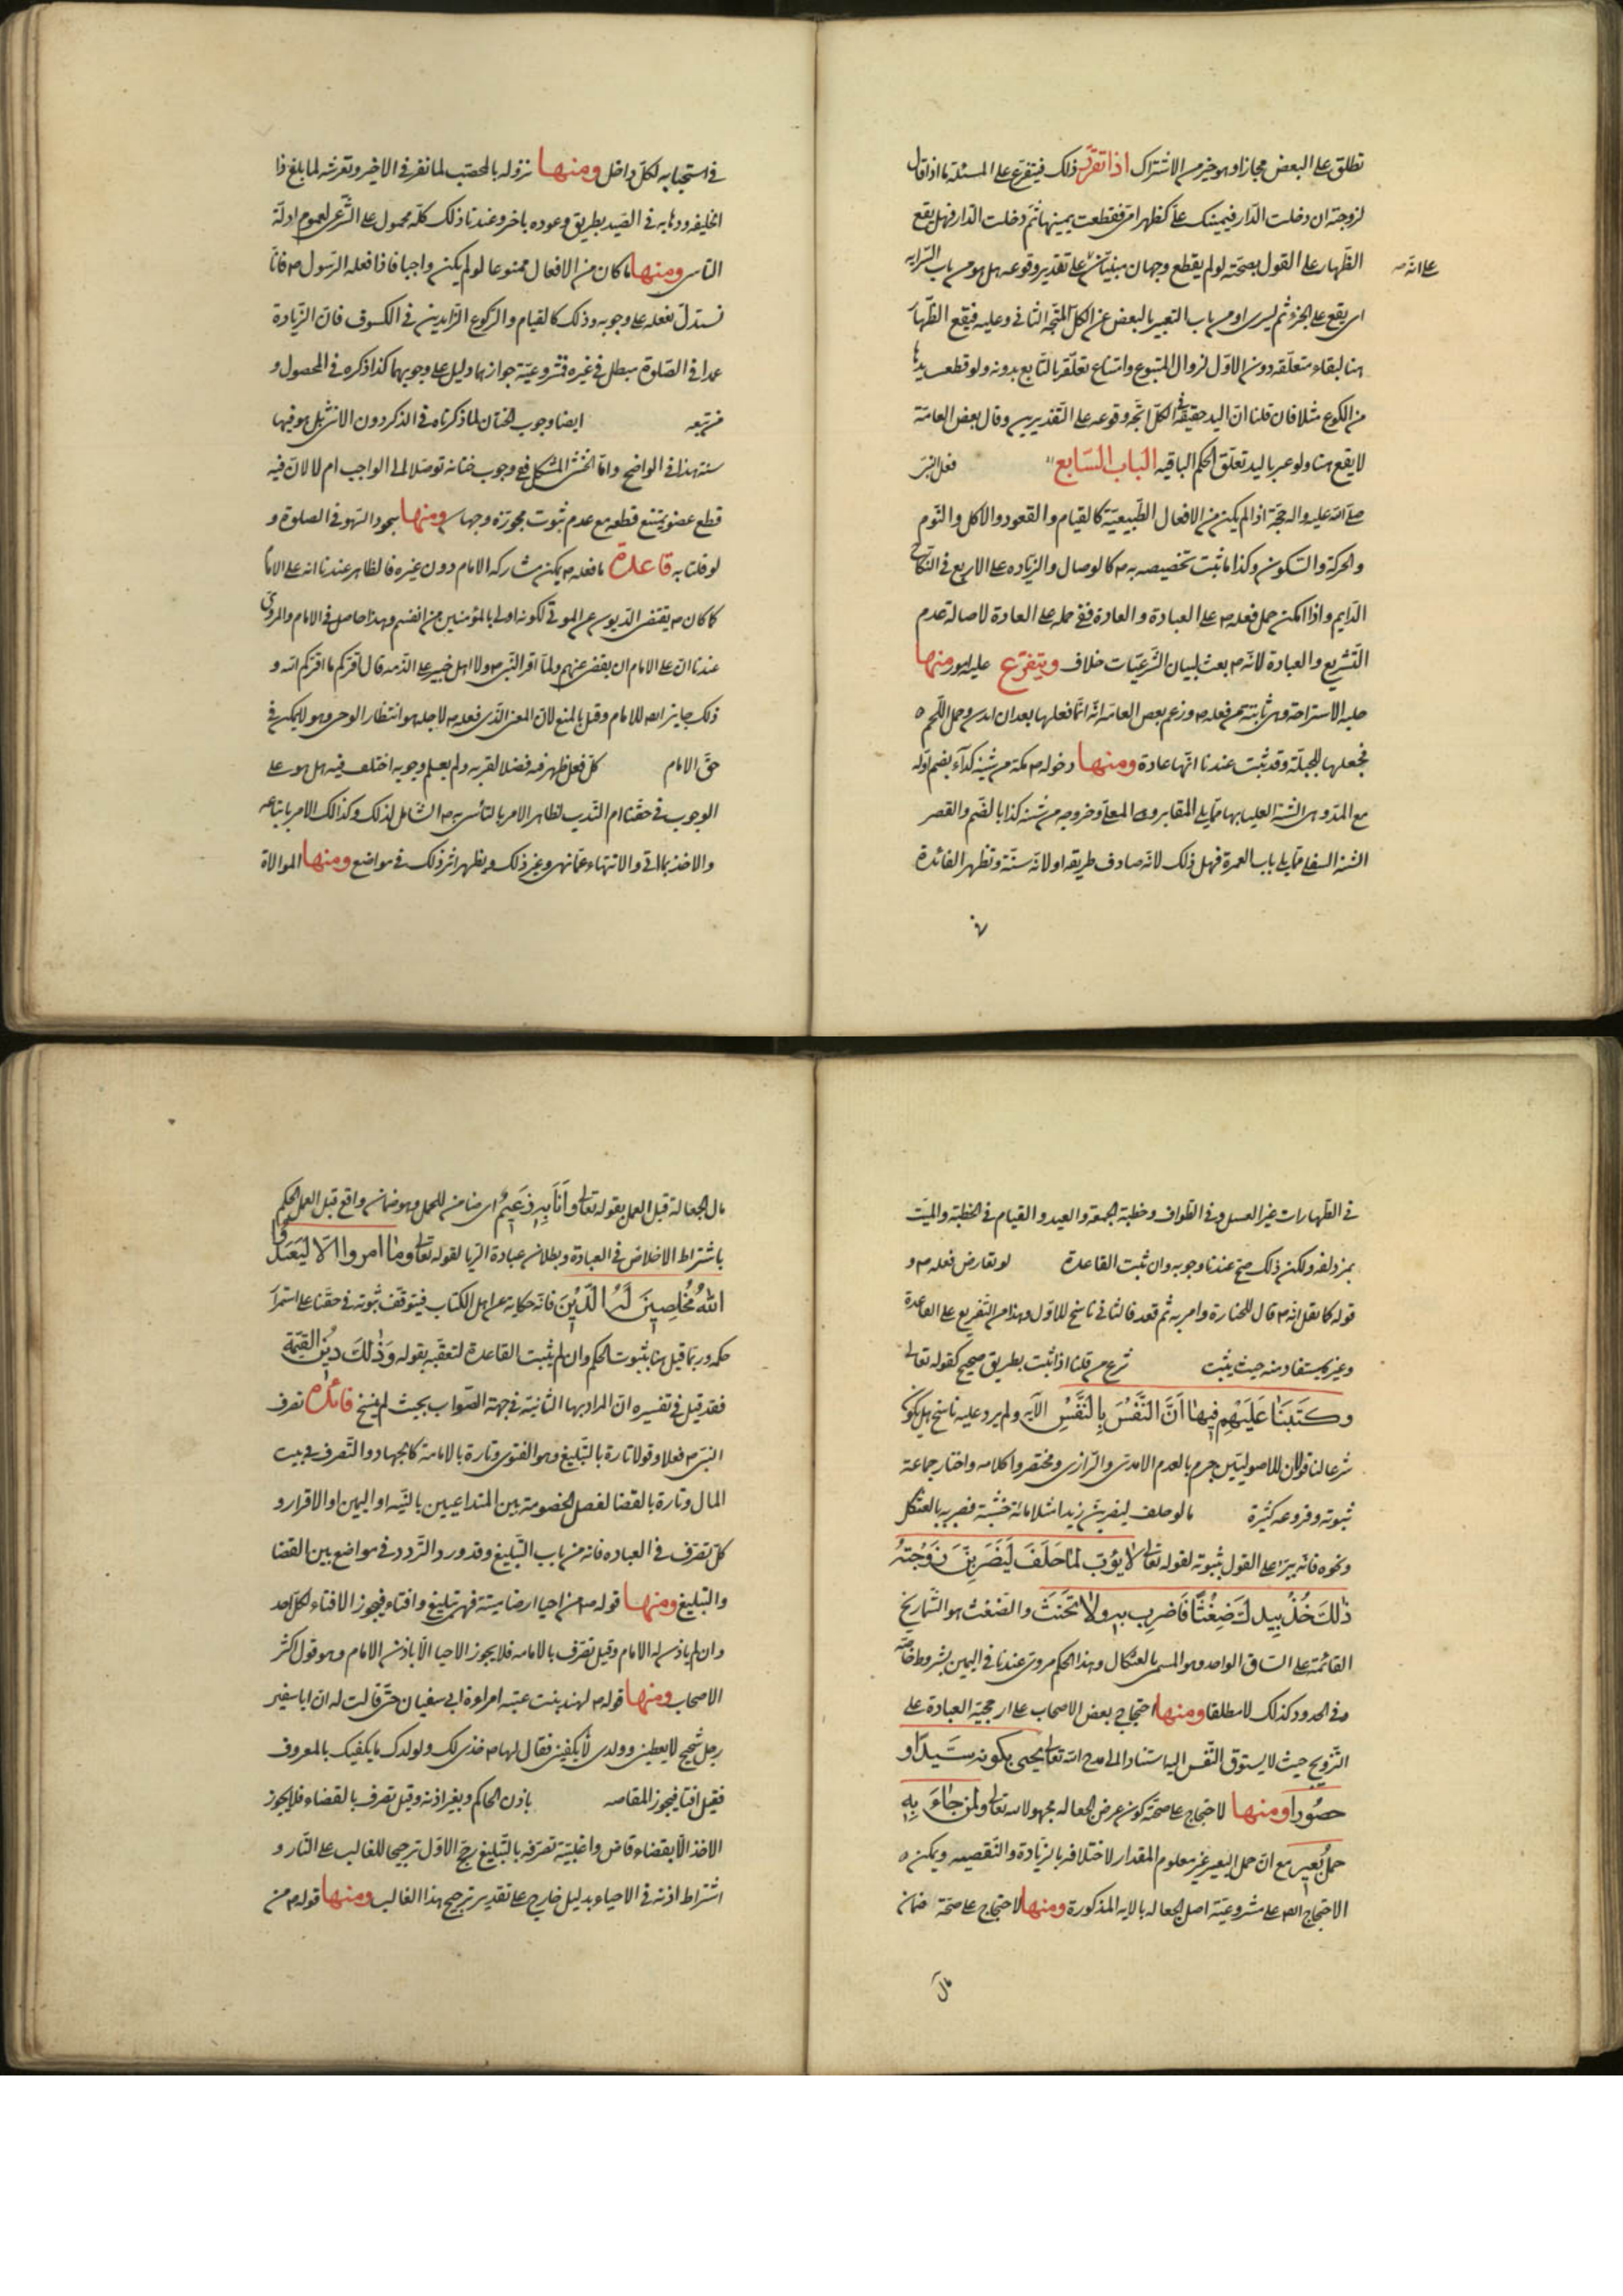 تطلق على البعض مجازا وهو خير من الاشتراك اذا تقرر ذلك فيتفرع على المسئلة ما اذا قال
لزوجته ان دخلت الدار فيمينك على كظهر امى فقطعت يمينها ثم دخلت الدار فهل يقع
الظهار على القول بصحته لو لم يقطع وجهان مبنيان على تقدير وقوعه هل هو من باب السرايه
على انه
اى يقع على الجزء ثم يسرى او من باب التعبير بالبعض عن الكل المتجه الثانى وعليه فيقع الظهار
هنا لبقاء متعلقه دون الاول لزوال المتبوع وامتناع تعلقه بالتابع بدونه ولو قطعت يدها
من الكوع مثلا فان قلنا ان اليد حقيقة فى الكل اتجه وقوعه على التقديرين وقال بعض العامة
لا يقع هنا ولو عبر باليد تعلق الحكم الباقيه الباب السابع فعل النبى
صلى الله عليه واله حجة اذا لم يكن من الافعال الطبيعية كالقيام والقعود والاكل والنوم
والحركة والسكون وكذا ما ثبت تخصيصه به كالوصال والزياده على الاربع فى النكاح
الدايم واذا امكن حمل فعله على العبادة والعادة ففى حمله على العادة لاصالة عدم
التشريع والعبادة لانه بعث لبيان الشرعيات خلاف ويتفرع عليه امور ومنها
جلسة الاستراحة وهى ثابتة من فعله وزعم بعض العامة انه انما فعلها بعد ان بدن وحمل اللحم
فجعلها للجبلة وقد ثبت عندنا انها عادة ومنها دخوله مكة من ثنية كداء بفتح اوله
مع المد وهى الثنية العليا بها مما يلى المقابر وهى المعلى وخروجه من ثنية كدا بالضم والقصر
الثنية السفلى مما يلى باب العمرة فهل ذلك لانه صادف طريقه او لانه سنة وتظهر الفائدة
فى
فى استحبابه لكل داخل ومنها نزوله بالمحصب لما نفر فى الاخير وتعرسه لما بلغ ذا
الحليفه وذهابه فى العيد بطريق وعوده باخر وعندنا ذلك كله محمول على الشرعى لعموم ادلة
التاسى ومنها ما كان من الافعال ممنوعا لو لم يكن واجبا فاذا فعله الرسول فانا
نستدل بفعله على وجوبه وذلك كالقيام والركوع الزايدين فى الكسوف فان الزيادة
عمدا فى الصلوة مبطل فى غيره فمشروعية جوازهما دليل على وجوبهما كذا ذكره فى المحصول و
من تبعه ايضا وجوب الختان لما ذكرناه فى الذكر دون الانثى بل هو فيها
سنة هذا فى الواضح واما الخنثى المشكل ففى وجوب ختانه توصلا الى الواجب ام لا لان فيه
قطع عضو يمتنع قطعه مع عدم ثبوت مجوزه وجهان ومنها سجود السهو فى الصلوة و
لو قلنا به قاعدة ما فعله ويمكن مشاركه الامام دون غيره فالظاهر عندنا انه على الامام
كما كان يقضى الديون عن الموتى لكونه اولى بالمؤمنين من انفسهم وهذا حاصل فى الامام والمروى
عندنا ان على الامام ان يقضى عنهم ولما اقر النبى اهل خيبر على الذمه قال اقركم ما اقركم الله و
ذلك جايز ايضا للامام وقيل بالمنع لان المعنى الذى فعله لاجله هو انتظار الوحى وهو لا يمكن فى
حق الامام كل فعل ظهر فيه فضلا لقربه ولم يعلم وجوبه اختلف فيه هل هو على
الوجوب فى حقنا ام الندب لظاهر الامر بالتأسى به الشامل لذلك وكذلك الامر باتباعه
والاخذ بما اتى والانتهاء عما نهى وغير ذلك ويظهر اثر ذلك فى مواضع ومنها الموالاة
فى الطهارات غير الغسل وفى الطواف وخطبة الجمعة والعيد والقيام فى الخطبة والمبيت
بمزدلفه ولكن ذلك صح عندنا وجوبه وان ثبت القاعدة لو تعارض فعله و
قوله كما نقل انه قال للجنازة وامر به ثم قعد فالثانى ناسخ للاول وهذا من التفريع على القاعدة
وغيره يستفاد منه حيث يثبت شرع من قلنا اذا ثبت بطريق صحيح كقوله تعالى
وكتبنا عليهم فيها ان النفس بالنفس الآيه ولم يرد عليه ناسخ هل يكون
شرعا لنا قولان للاصوليين جزم بالعدم الامدى والرازى ومختصروا كلامه واختار جماعة
ثبوته وفروعه كثيرة ما لو حلف ليضربن زيدا مثلا مائة خشبة فضربه بالعثكل
ونحوه فانه يبر على القول بثبوته لقوله تعالى لايوب لما حلف ليضربن زوجته
ذلك خذ بيدك ضغثا فاضرب به ولا تحنث والضغث هو الشماريخ
القائمة على الساق الواحد وهو المسمى بالعثكال وهذا الحكم مروى عندنا فى اليمين بشروط خاصه
وفى الحدود كذلك لا مطلقا ومنها احتجاج بعض الاصحاب على ارجحية العبادة على
التزويج حيث لا يستوق النفس اليه استنادا الى مدح الله تعالى يحيى بكونه سيدا و
حصورا ومنها لاحتجاج على صحة كون عرض الجعاله مجهولا لقوله تعالى ولمن جاء به
حمل بعير مع ان حمل البعير غير معلوم المقدار لاختلافه بالزيادة والنقصيه ويمكن
الاحتجاج ايضا على مشروعية اصل الجعاله بالايه المذكورة ومنها لاحتجاج على صحة ضمان
مال
مال الجعالة قبل العمل بقوله تعالى وانا به زعيم اى ضامن للحمل وهو ضمان واقع قبل العمل الحكم
باشتراط الاخلاص فى العبادة وبطلان عبادة الريا لقوله تعالى وما امروا الا ليعبدوا
الله مخلصين له الدين فانه حكاية عن اهل الكتاب فيتوقف ثبوته فى حقنا على استمرار
حكمه وربما قيل هنا بثبوت الحكم وان لم يثبت القاعدة لتعقبه بقوله وذلك دين القيمة
فقد قيل فى تفسيره ان المراد بها الثابتة فى جهة الصواب بحيث لم ينسخ فائدة تصرف
النبى فعلا وقولا تارة بالتبليغ وهو الفتوى وتارة بالامامة كالجهاد والتصرف فى بيت
المال وتارة بالقضا لفصل الخصومة بين المتداعيين بالبينه او اليمين او الاقرار و
كل تصرف فى العباده فانه من باب التبليغ وقد ورد التردد فى مواضع بين القضا
والتبليغ ومنها قوله من احيا ارضا ميتة فهى تبليغ وافتاء فيجوز الافتاء لكل احد
وان لم ياذن له الامام وقيل تصرف بالامامه فلا يجوز الاحيا الا باذن الامام وهو قول اكثر
الاصحاب ومنها قوله لهند بنت عتبه امراءة ابى سفيان حتى قالت له ان ابا سفين
رجل شحيح لا يعطينى وولدى لا يكفينى فقال لها خذى لك ولولدك ما يكفيك بالمعروف
فقيل افتا فيجوز المقاصه باذن الحاكم وبغير اذنه وقيل تصرف بالقضاء فلا يجوز
الاخذ الا بقضاء قاض واغلبية تصرفه بالتبليغ رجح الاول ترجيحا للغالب على النادر و
اشتراط اذنه فى الاحياء بدليل خارج على تقدير ترجيح هذا الغالب ومنها قوله من